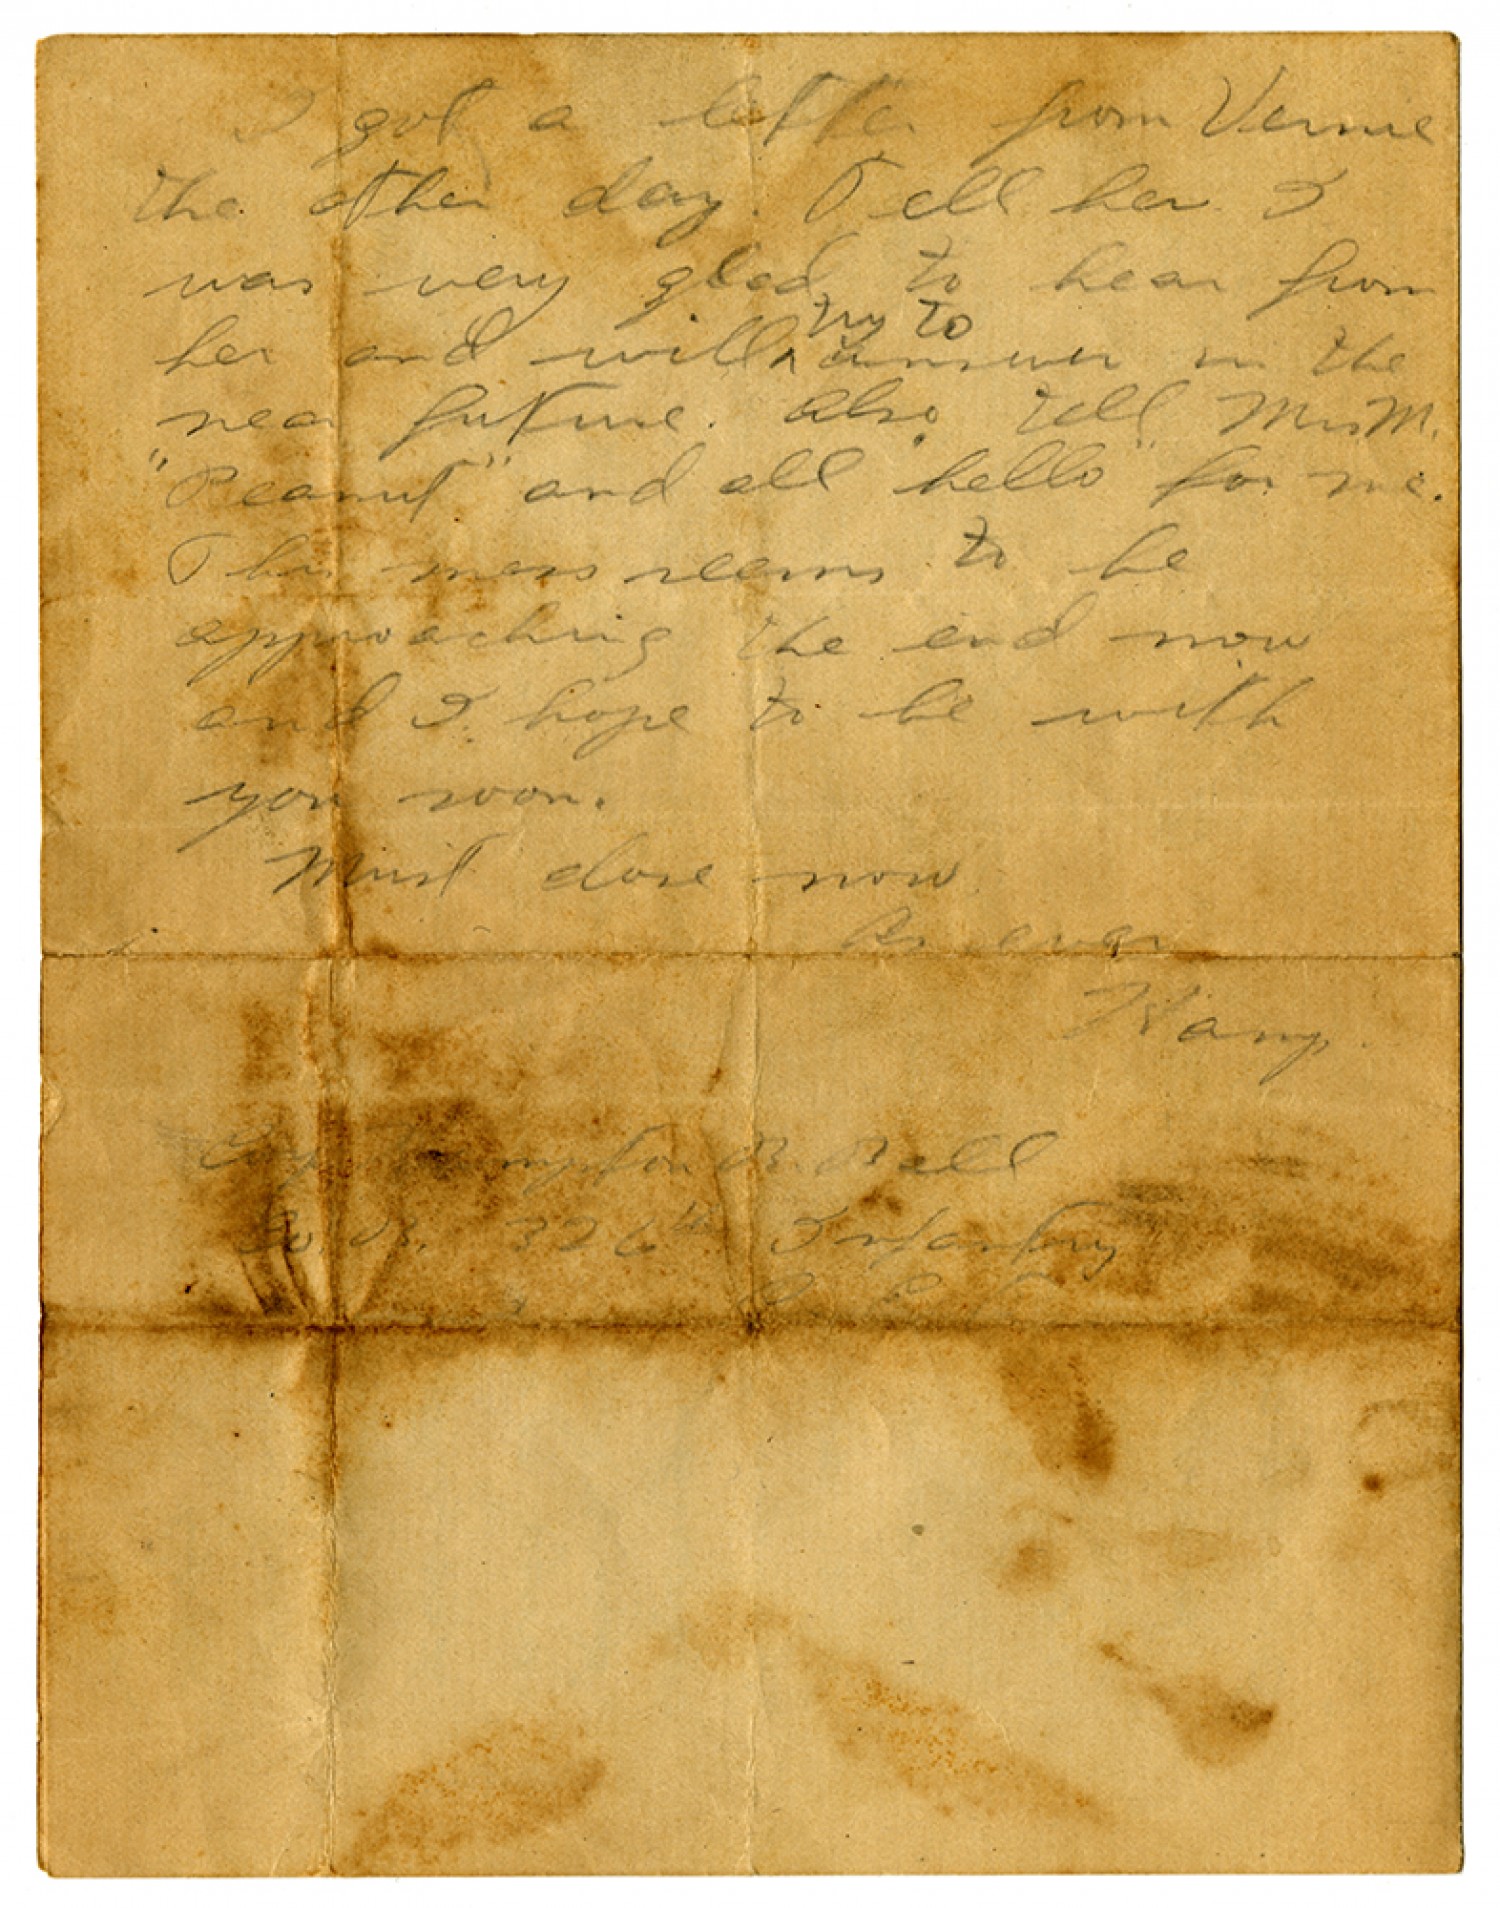 I got a letter from Vernie
the other day. Tell her I
was very glad to hear from
try to
her and will ^ answer in the
near future. Also tell Mrs M.
"Peanut" and all "hello" for me.
This mess seems to be
approaching the end now
and I hope to be with
you soon.
Must close now
As ever
Hamp.
Hampton B. Bell
Co. B. 326th Infantry
A. E. F.